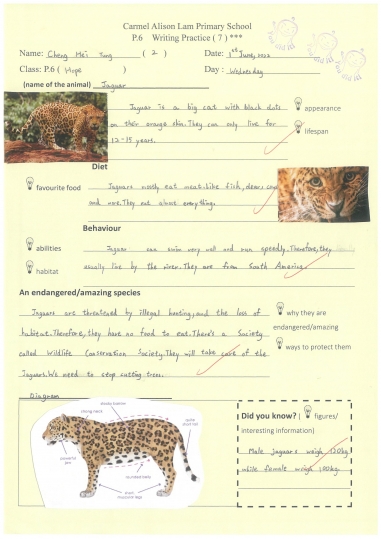 Carmel Alison Lam Primary School
P.6 Writing Practice ( 7 ) ***
Name: Cheng Mei Tung ( 2 ) Date: 1st June, 2022
Class: P.6 ( Hope ) Day : Wednesday
(name of the animal) Jaguar
Jaguar is a big cat with black dots
on their orange skin. They can only live for
12-15 years.
appearance
lifespan
Diet
favourite food
Jaguars mostly eat meat like fish, deers
and more. They eat almost everything.
Behaviour
abilities
habitat
Jaguar can swim very well and run speedly. Therefore, they
usually live by the river. They are from South America.
An endangered/amazing species
Jaguars are threatened by illegal hunting, and the loss of
habitat. Therefore, they have no food to eat. There's a Society
called Wildlife Conservation Society. They will take care of the
Jaguars. We need to stop cutting trees.
why they are
endangered/amazing
ways to protect them
Diagram
powerful
jaw
rounded body
short
Did you know? ( figures/
interesting information)
Male jaguars weigh 120kg
while female weigh 100kg.